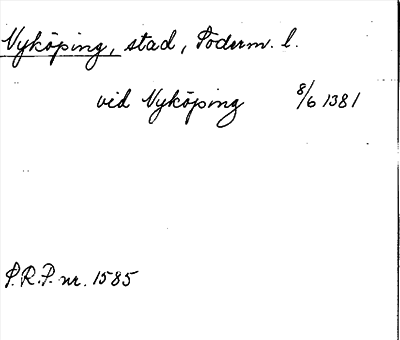 Nyköping, stad, Söderm. l.
vid Nyköping 8/6 1381
S.R.P. nr. 1585